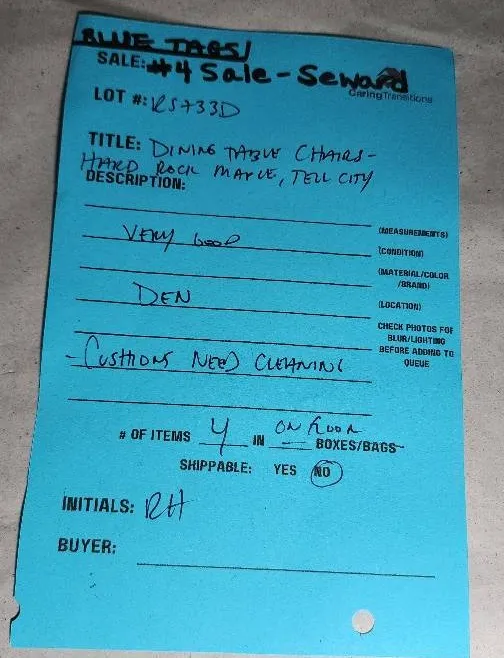 BLUE TAGS/
SALE: #4 Sale - Seward
Caring Transitions
LOT #: RS733D
TITLE: DINING TABLE CHAIRS -
HARD ROCK MAPLE, TELL CITY
DESCRIPTION:
(MEASUREMENTS)
VERY GOOD (CONDITION)
(MATERIAL/COLOR
/BRAND)
DEN (LOCATION)
CHECK PHOTOS FOR
BLUR/LIGHTING
BEFORE ADDING TO
QUEUE
- CUSHIONS NEED CLEANING
# OF ITEMS 4 IN ON FLOOR BOXES/BAGS
SHIPPABLE: YES NO
INITIALS: RH
BUYER: